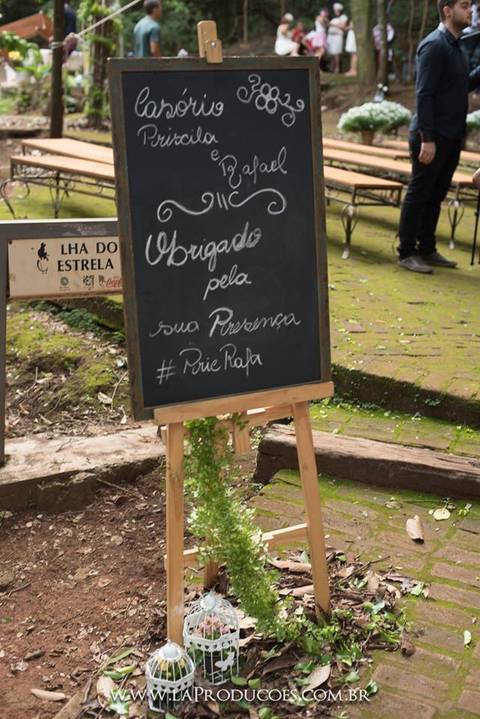 Casório
Priscila
e
Rafael
Obrigado
pela
sua Presença
#PrieRafa
LHA DO
ESTRELA
www.laProducoes.com.br